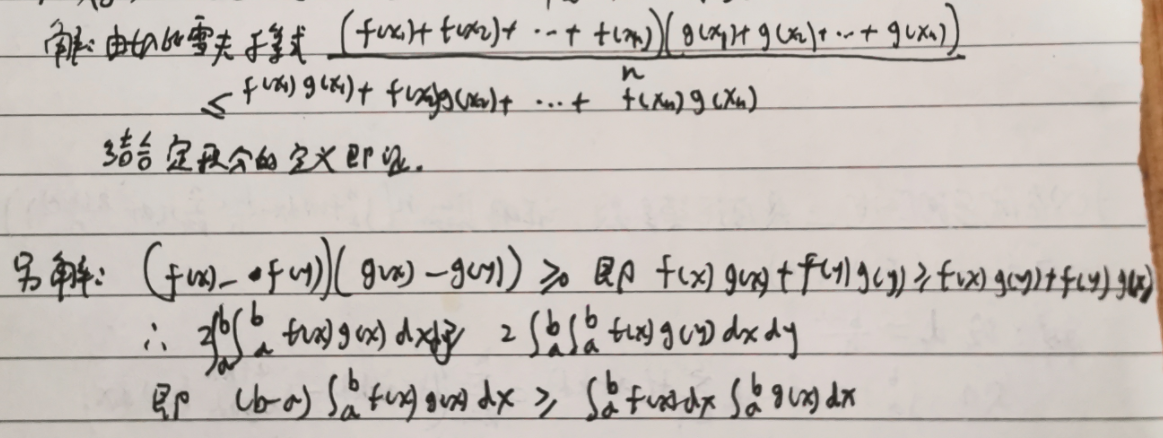 解: 由切比雪夫不等式 (f(x₁)+f(x₂)+…+f(xₙ))(g(x₁)+g(x₂)+…+g(xₙ)) / n
≤ f(x₁)g(x₁)+f(x₂)g(x₂)+…+f(xₙ)g(xₙ)
结合定积分的定义即证.
另解: (f(x)-f(y))(g(x)-g(y))≥0 即 f(x)g(x)+f(y)g(y)≥f(x)g(y)+f(y)g(x)
∴ 2∫ₐᵇ∫ₐᵇ f(x)g(x)dxdy≥ 2∫ₐᵇ∫ₐᵇ f(x)g(y)dxdy
即 (b-a)∫ₐᵇ f(x)g(x)dx ≥ ∫ₐᵇ f(x)dx ∫ₐᵇ g(x)dx